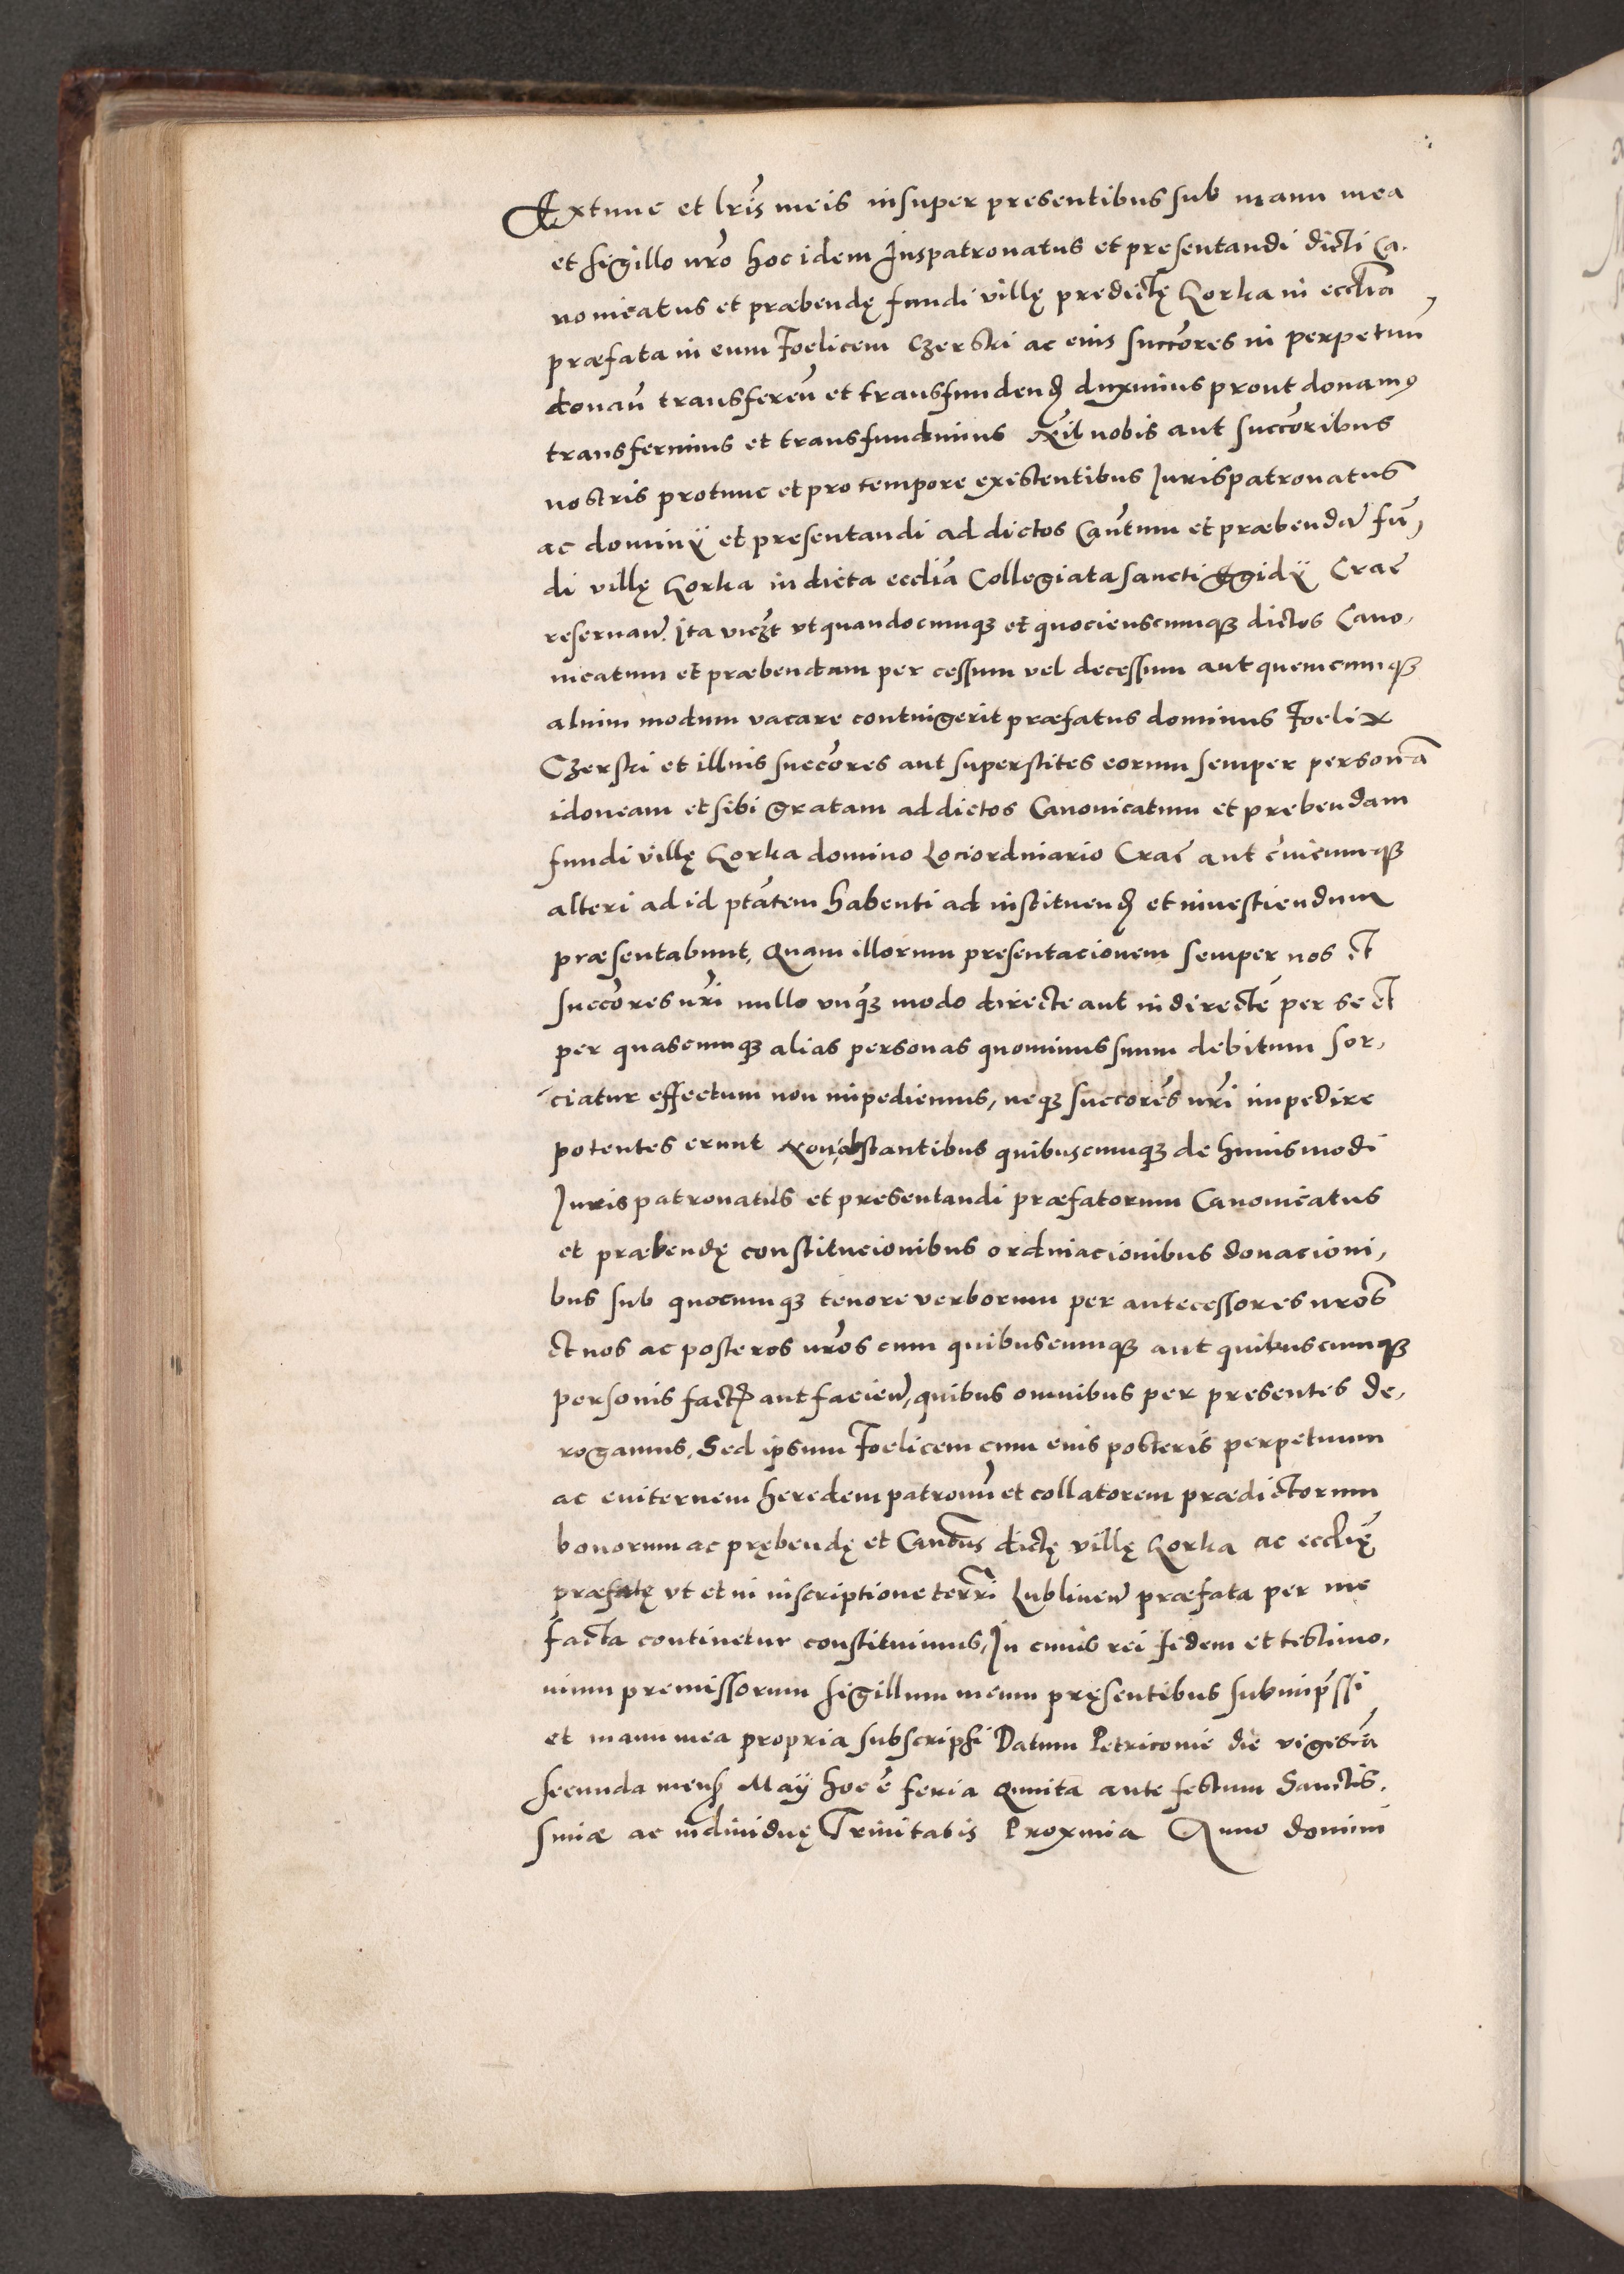 Extunc et lr̃is meis insuper presentibus sub manu mea
et sigillo nr̃o hoc idem Juspatronatus et presentandi dicti Ca,
nonicatus et præbendę fundi villę predictę Gorka in eccl̃ia
præfata in eum Foelicem Czerski ac eius succõres in perpetuũ
donañ transfereñ et transfundend̃ duximus prout donamꝰ
transferimus et transfundimus Nil nobis aut succõribus
nostris protunc et pro tempore existentibus Jurispatronatus
ac dominÿ et presentandi ad dictos Cañtum et præbendã fũ,
di villę Gorka in dicta eccl̃ia Collegiata sancti Egidÿ Crac̃
reseruañ. Ita vicz̃t vt quandocumqꝫ et quocienscumqꝫ dictos Cano,
nicatum et præbendam per cessum vel decessum aut quemcumqꝫ
alium modum vacare contingerit præfatus dominus Foelix
Czerski et illius succõres aut superstites eorum semper personã
idoneam et sibi gratam ad dictos Canonicatum et prebendam
fundi villę Gorka domino Lociordinario Crac̃ aut cuicumqꝫ
alteri ad id ptãtem habenti ad instituend̃ et inuestiendum
præsentabunt, Quam illorum presentacionem semper nos et
succõres nr̃i nullo vnq̃ꝫ modo directe aut indirecte per se et
per quascumqꝫ alias personas quominus suum debitum sor,
ciatur effectum non impediemus, neqꝫ succorẽs nr̃i impedire
potentes erunt Non obstantibus quibuscumqꝫ de huiusmodi
Jurispatronatus et presentandi præfatorum Canonicatus
et præbendę constitucionibus ordinacionibus donacioni,
bus sub quocumqꝫ tenore verborum per antecessores nr̃os
et nos ac posteros nr̃os cum quibuscumqꝫ aut quibuscumqꝫ
personis fact̃ aut facieñ, quibus omnibus per presentes de,
rogamus, Sed ipsum Foelicem cum eius posteris perpetuum
ac euiternem heredem patronũ et collatorem prædictorum
bonorum ac prębendę et Cañtus dictę villę Gorka ac eccl̃ię
præfatę vt et in inscriptione terrr̃i Lublineñ præfata per me
facta continetur constituimus, In cuius rei fidem et testimo,
nium premissorum sigillum meum pręsentibus subimpr̃ssi
et manu mea propria subscripsi Datum Petricouie die vigesĩa
secunda mens̃ Maÿ hoc ẽ feria Quinta ante festum Sanctis,
simæ ac indiuiduę Trinitatis Proxima Anno domini